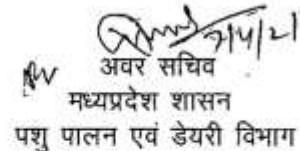 7/4/21
अवर सचिव
मध्यप्रदेश शासन
पशु पालन एवं डेयरी विभाग